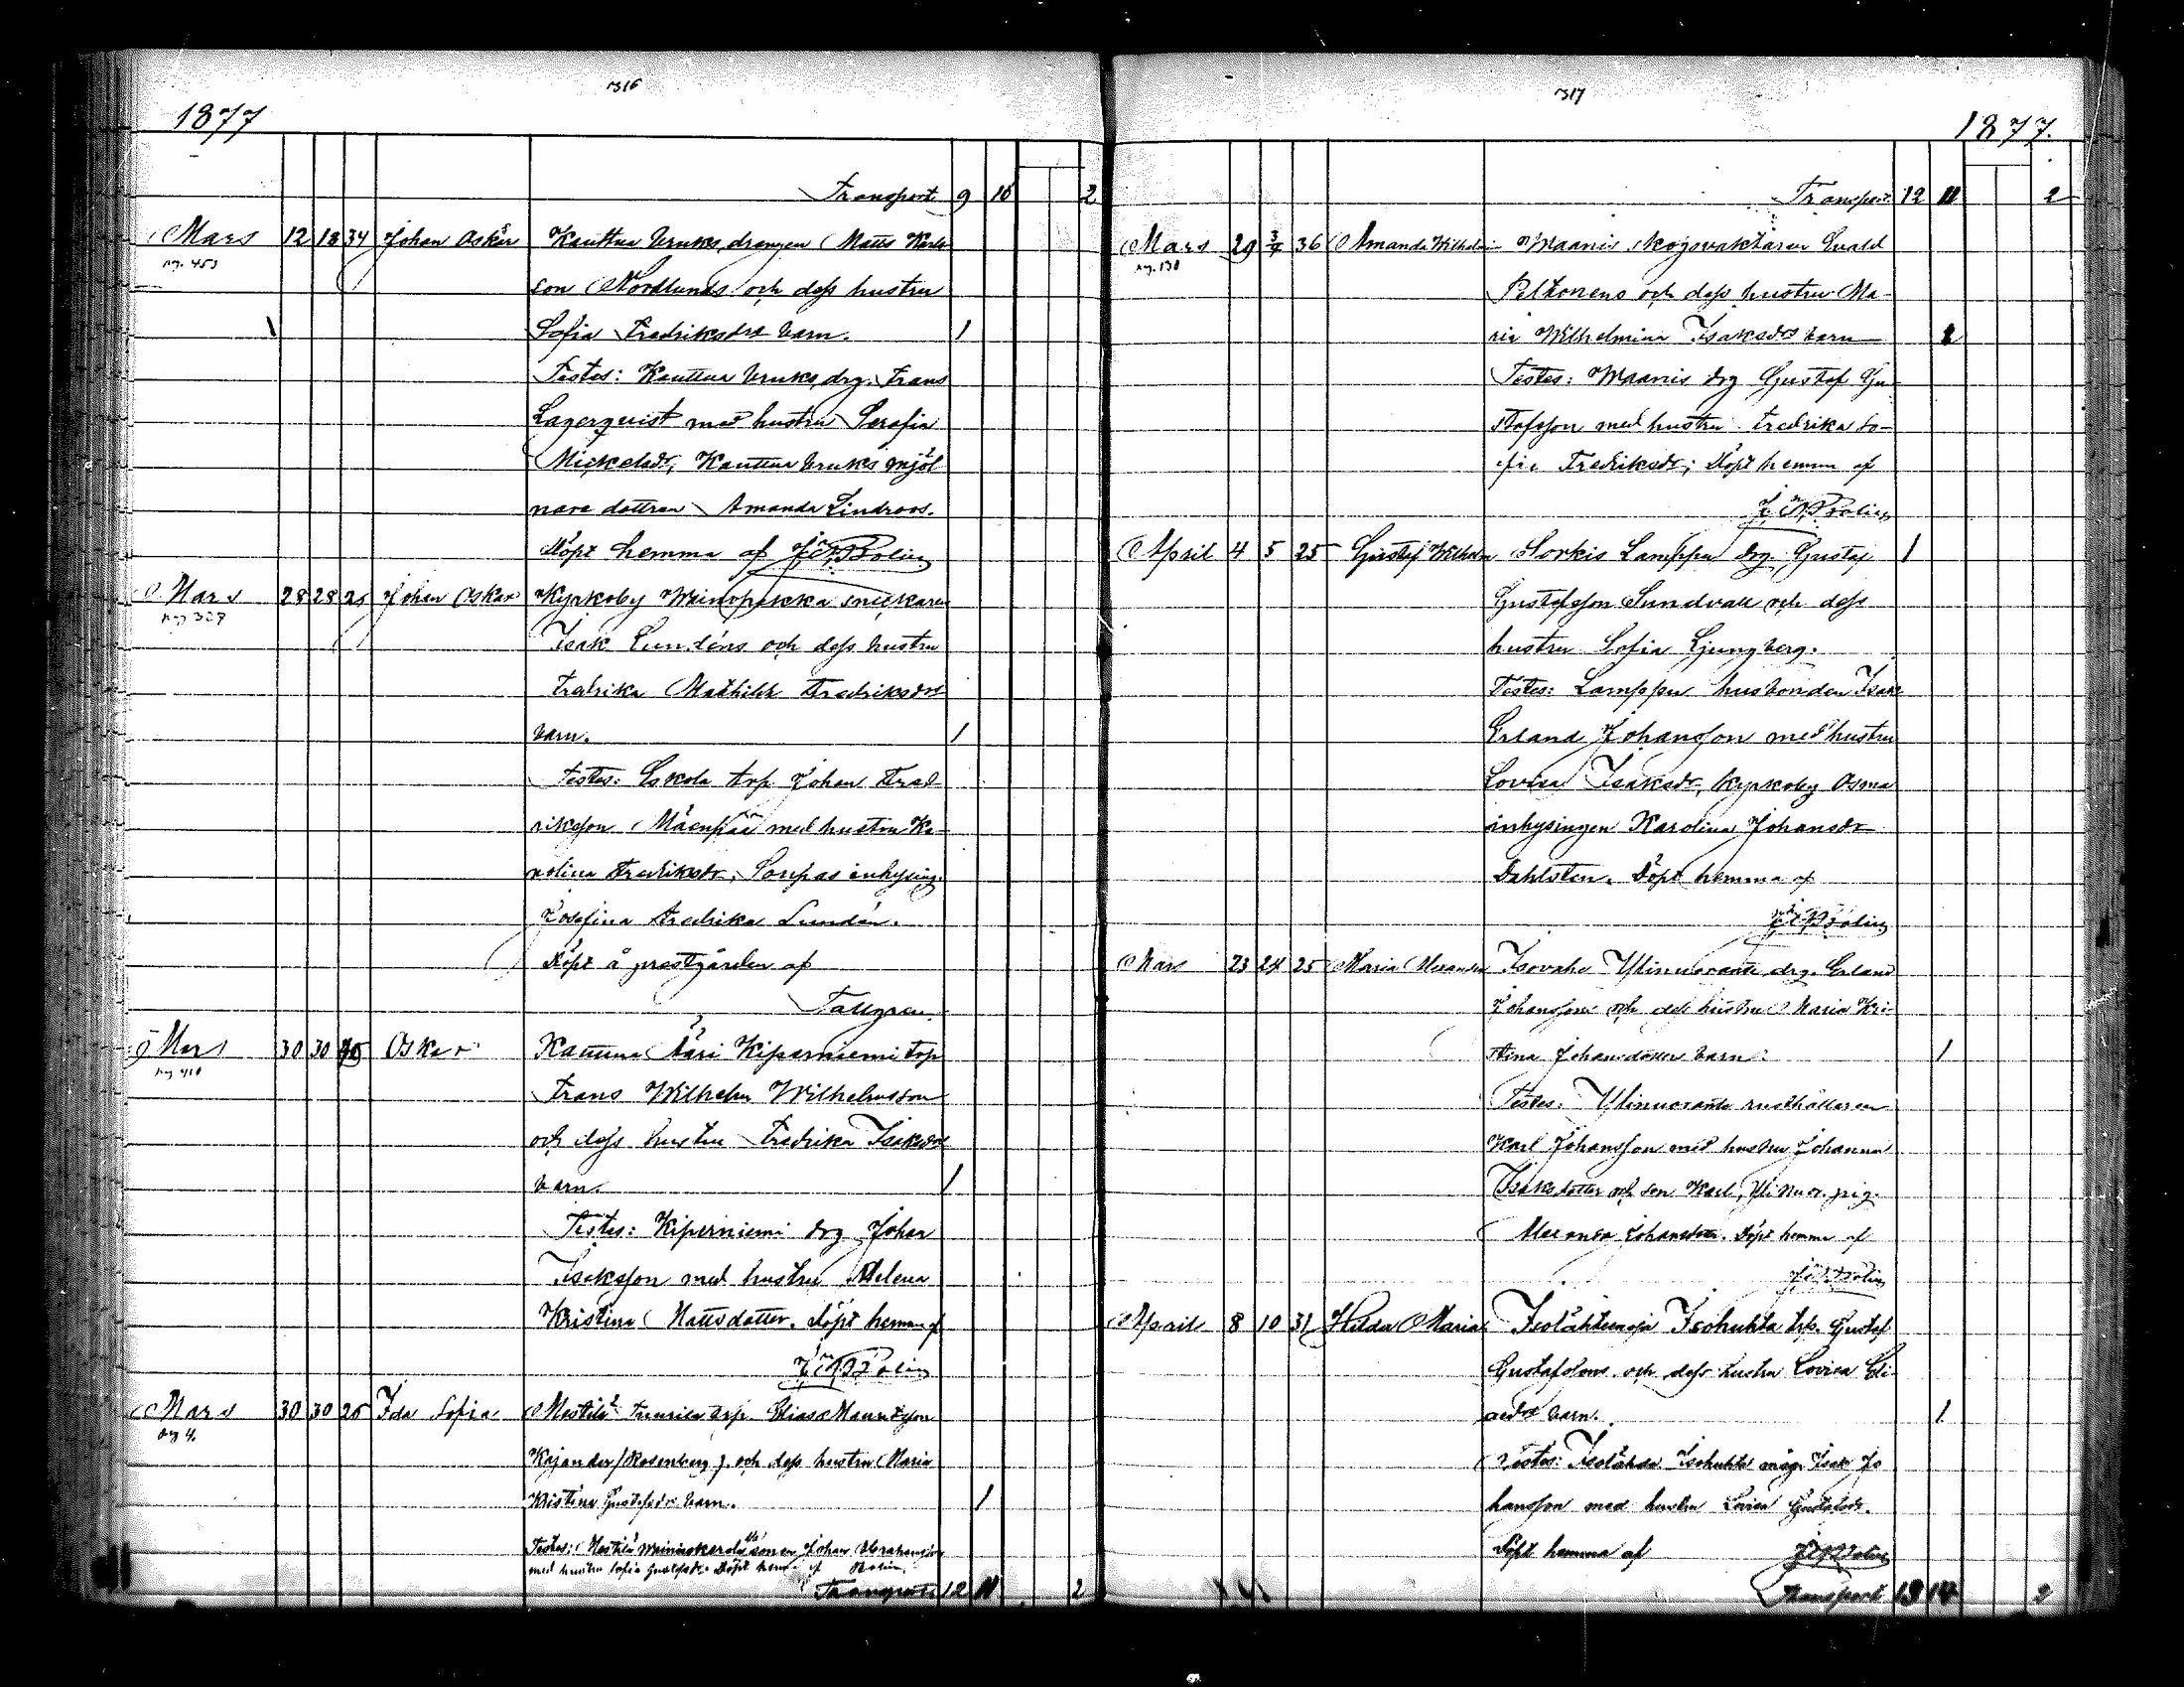 316
1877
Transport 9 10 2
Mars 12 18 34 Johan Oskar Kauttua bruks drängen Matts Karls
pag. 453
son Nordlunds och dess hustru
Sofia Fredriksdrs barn. 1
Testes: Kauttua bruks drg. Frans
Lagerquist med hustru Serafia
Mickelsdr, Kauttua bruks mjöl
nare dottren Amanda Lindroos.
Döpt hemma af J. A. Bolin
Mars 28 28 25 Johan Oskar Kyrkoby Wainopakka snickaren
pag 327
Isak Lundéns och dess hustru
Fredrika Mathilda Fredriksdrs
barn. 1
Testes: Eskola trp. Johan Fred
riksson Mäenpää med hustru Ka
rolina Fredriksdr, inhysing.
Josefina Fredrika Lundén.
Döpt å prestgården af
Tallgren.
Mars 30 30 Oskar Kauttua Kiperniemi trp
Frans Wilhelm Wilhelmsson
och dess hustru Fredrika Isaksdrs
barn. 1
Testes: Kiperniemi drg Johan
Isaksson med hustru Helena
Kristina Mattsdotter. Döpt hemma af
J. A. Bolin
Mars 30 30 25 Ida Sofia Mestilä trp. Elias Mauritzson
pag 4.
Kajander (Rosenberg) och dess hustru Maria
Kristina Gustafsdr barn. 1
Testes: Mestilä sonen Johan Abrahamsson
med hustru Sofia Gustafsdr. Döpt hemma af Bolin.
Transport 12 11 2
317
1877.
Transport 12 11 2
Mars 29 3/4 36 Amanda Wilhelmin Maanis skogsvaktaren Evald
pag. 130
Peltonens och dess hustru Ma-
ria Wilhelmina Isaksdrs barn 1
Testes: Maanis drg Gustaf Gu
stafsson med hustru Fredrika So-
fia Fredriksdr; Döpt hemma af
J. A. Bolin
April 4 5 25 Gustaf Wilhelm Sorkis Lamppu drg. Gustaf 1
Gustafsson Sundvall och dess
hustru Sofia Ljungberg.
Testes: Lamppu husbonden Isak
Erland Johansson med hustru
Lovisa Isaksdr, Kyrkoby Osma
inhysingen Karolina Johansdr
Dahlsten. Döpt hemma af
J. A. Bolin
Mars 23 24 25 Maria Alexandra Isovahe Ylinuoranti drg. Erland
Johanssons och dess hustru Maria Kri-
stina Johansdotter barn. 1
Testes: Ylinuoranti rusthållaren
Karl Johansson med hustru Johanna
Isaksdotter och son Karl, Ylinuor. pig.
Johansdotter. Döpt hemma af
J. A. Bolin
April 8 10 31 Hilda Maria Isohukka trp. Gustaf
Gustafssons och dess hustru Lovisa Eli
aedr barn. 1
Testes: Isohukka måg Isak Jo
hansson med hustru Lovisa Gustafsdr.
Döpt hemma af J. A. Bolin
Transport 13 14 2